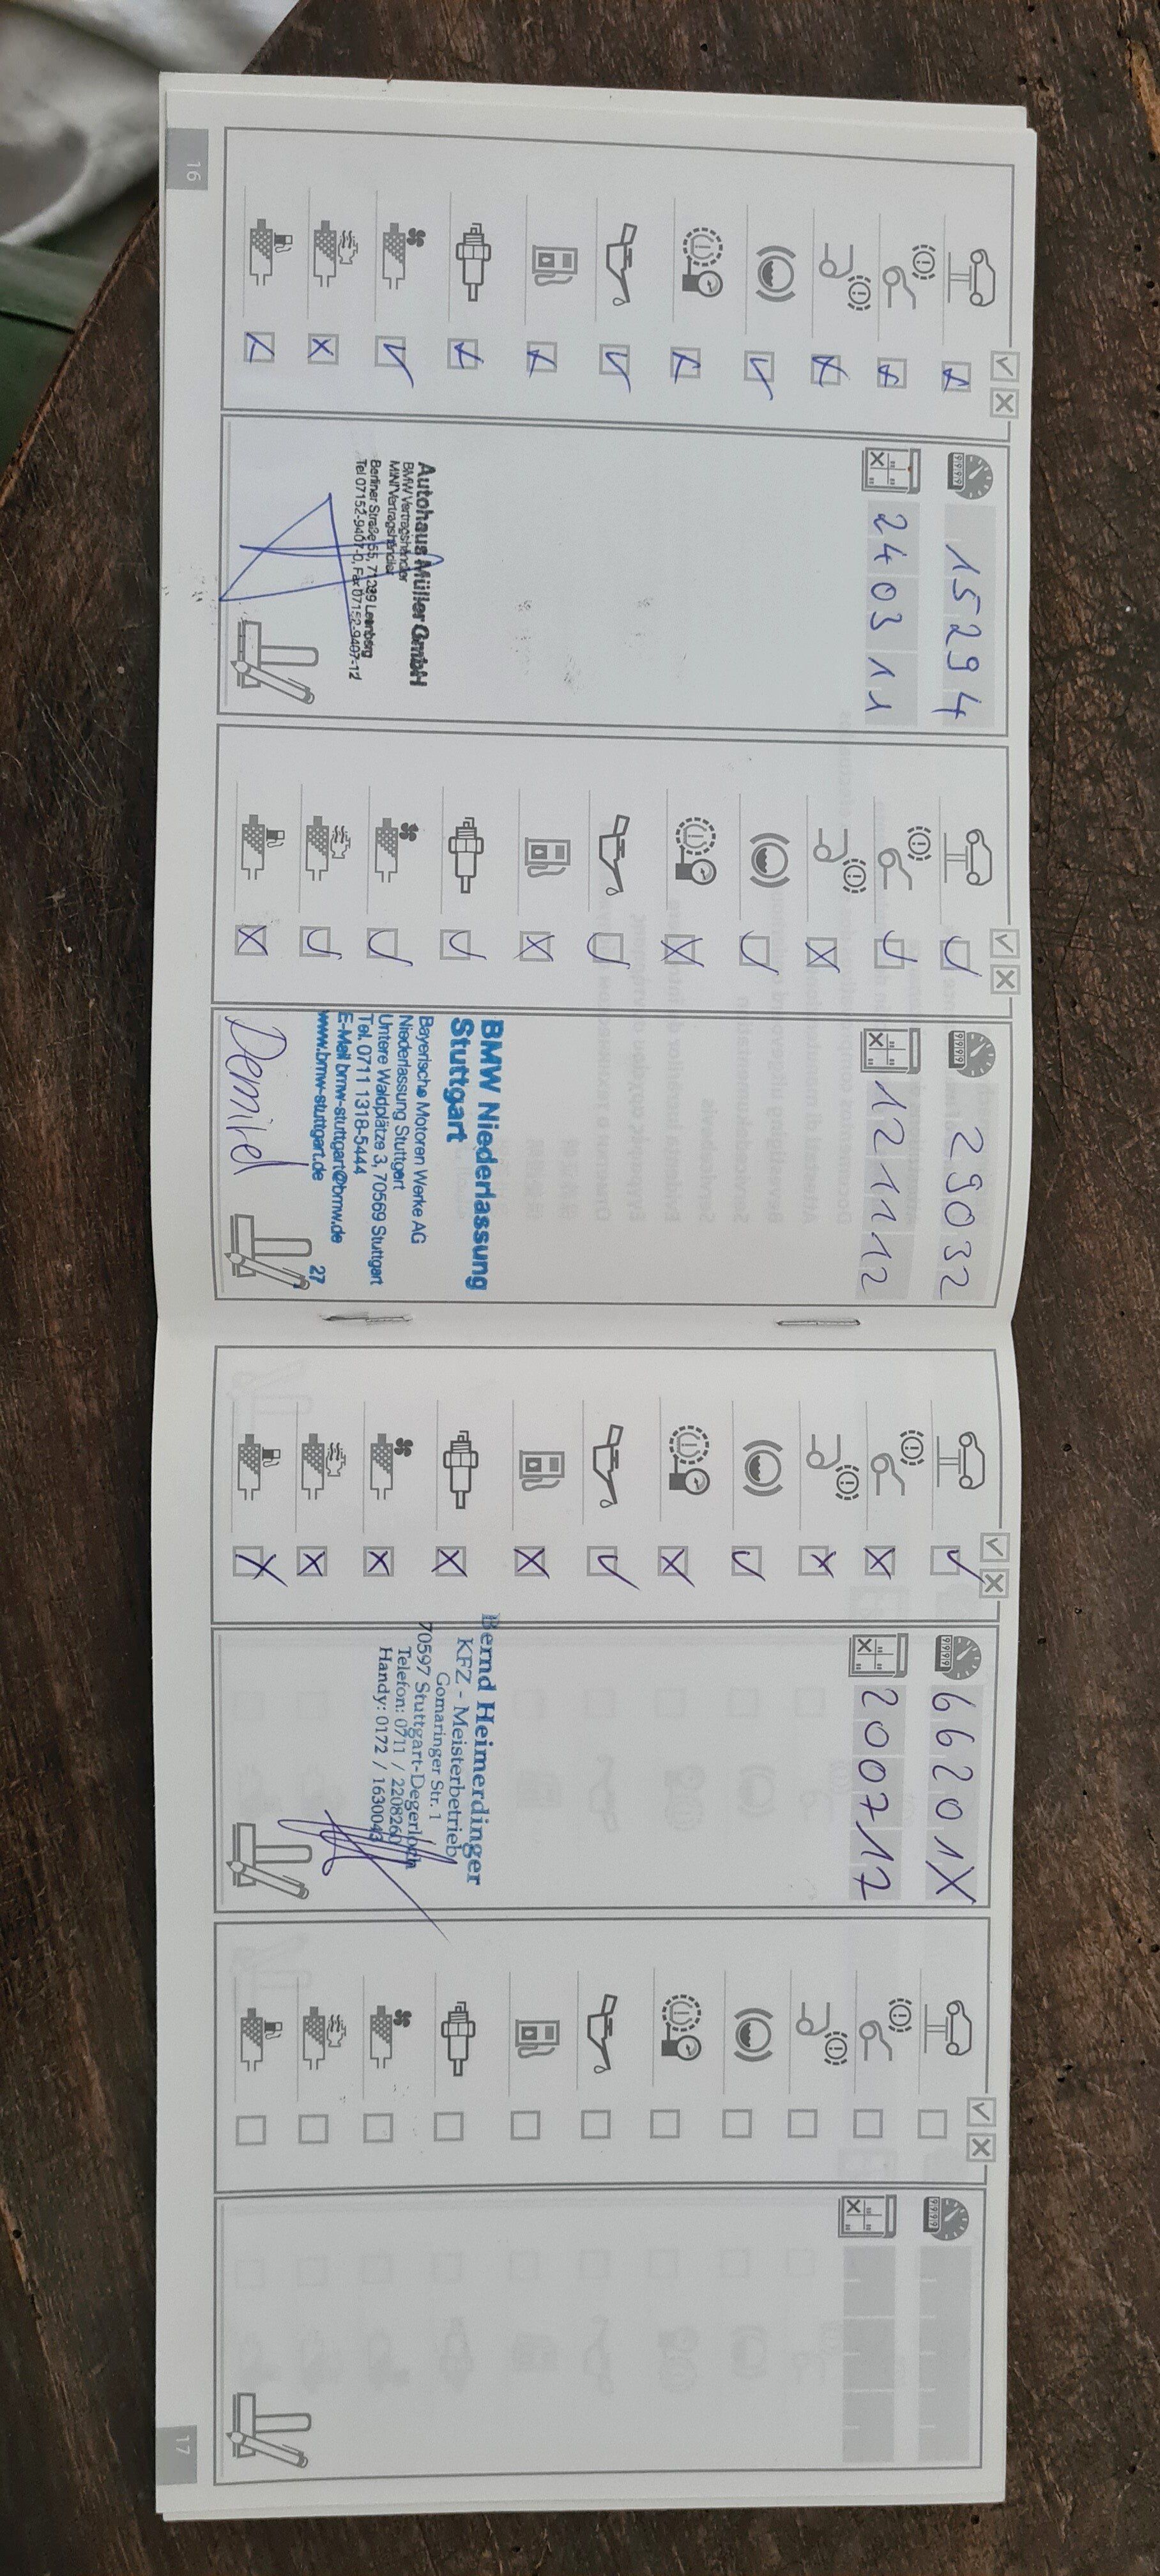 16
15294
240311
Autohaus Müller GmbH
BMW Vertragshändler
MINI Vertragshändler
Berliner Straße 55, 71229 Leonberg
Tel 07152-9407-0, Fax 07152-9407-12
29032
121112
BMW Niederlassung
Stuttgart
Bayerische Motoren Werke AG
Niederlassung Stuttgart
Untere Waldplätze 3, 70569 Stuttgart
Tel. 0711 1318-5444
E-Mail bmw-stuttgart@bmw.de
www.bmw-stuttgart.de
27
Demirel
66201X
200717
Bernd Heimerdinger
KFZ - Meisterbetrieb
Gomaringer Str. 1
70597 Stuttgart-Degerloch
Telefon: 0711 / 2208260
Handy: 0172 / 1630043
17